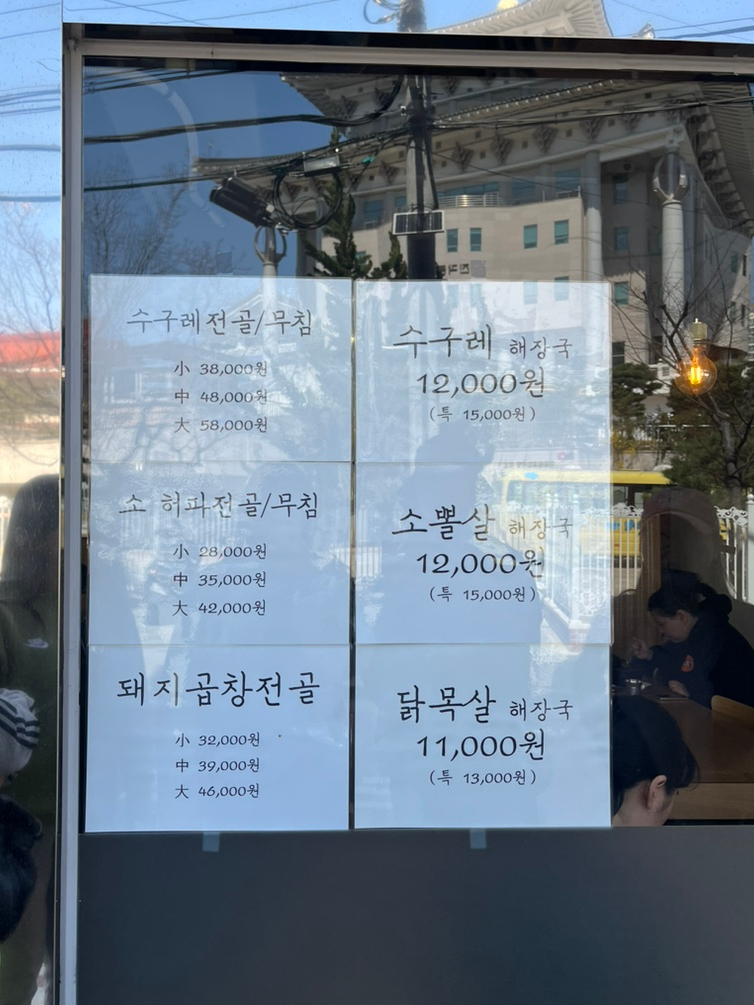 수구레전골/무침
小 38,000원
中 48,000원
大 58,000원
수구레 해장국
12,000원
(특 15,000원)
소 허파전골/무침
小 28,000원
中 35,000원
大 42,000원
소뽈살 해장국
12,000원
(특 15,000원)
돼지곱창전골
小 32,000원
中 39,000원
大 46,000원
닭목살 해장국
11,000원
(특 13,000원)